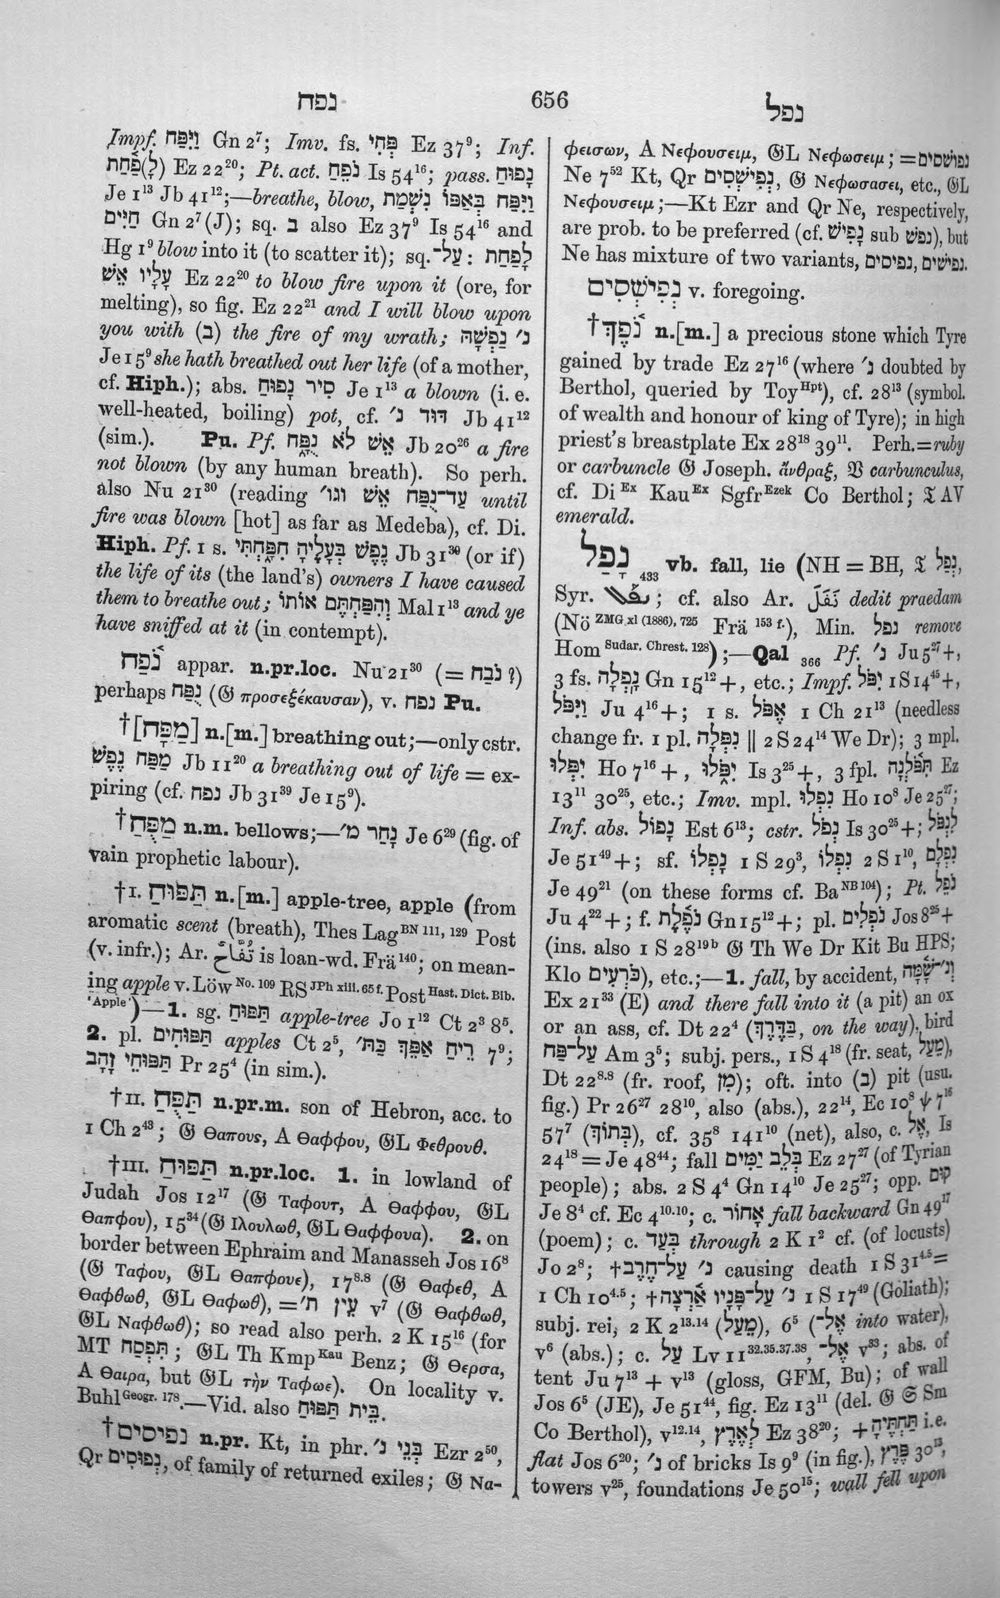 נפח
656
נפל
Impf. וַיִּפַּח Gn 2⁷; Imv. fs. פְּחִי Ez 37⁹; Inf.
(לָ)פַחַת(?) Ez 22²⁰; Pt. act. נֹפֵחַ Is 54¹⁶; pass. נָפוּחַ
Je 1¹³ Jb 41¹²;—breathe, blow, וַיִּפַּח בְּאַפּוֹ נִשְׁמַת
חַיִּים Gn 2⁷ (J); sq. ב also Ez 37⁹ Is 54¹⁶ and
Hg 1⁹ blow into it (to scatter it); sq. עַל־: לָפַחַת
עָלָיו אֵשׁ Ez 22²⁰ to blow fire upon it (ore, for
melting), so fig. Ez 22²¹ and I will blow upon
you with (ב) the fire of my wrath; נ׳ נַפְשָׁהּ
Je 15⁹ she hath breathed out her life (of a mother,
cf. Hiph.); abs. סִיר נָפוּחַ Je 1¹³ a blown (i. e.
well-heated, boiling) pot, cf. דּוּד נ׳ Jb 41¹²
(sim.). Pu. Pf. אֵשׁ לֹא נֻפָּח Jb 20²⁶ a fire
not blown (by any human breath). So perh.
also Nu 21³⁰ (reading עַד־נֻפַּח אֵשׁ וגו׳ until
fire was blown [hot] as far as Medeba), cf. Di.
Hiph. Pf. 1 s. נֶפֶשׁ בְּעָלֶיהָ הִפָּחְתִּי Jb 31³⁹ (or if)
the life of its (the land's) owners I have caused
them to breathe out; וְהִפַּחְתֶּם אוֹתוֹ Mal 1¹³ and ye
have sniffed at it (in contempt).
נֹפַח appar. n.pr.loc. Nu 21³⁰ (= נבח ?)
perhaps נֻפַּח (𝔊 προσεξέκαυσαν), v. נפח Pu.
†[מַפָּח] n.[m.] breathing out;—only cstr.
מַפַּח נֶפֶשׁ Jb 11²⁰ a breathing out of life = ex-
piring (cf. נפח Jb 31³⁹ Je 15⁹).
†מַפֻּחַ n.m. bellows;—נָחַר מ׳ Je 6²⁹ (fig. of
vain prophetic labour).
†I. תַּפּוּחַ n.[m.] apple-tree, apple (from
aromatic scent (breath), Thes Lag ᴮᴺ ¹¹¹, ¹²⁹ Post
(v. infr.); Ar. تُفَّاحٌ is loan-wd. Frä¹⁴⁰; on mean-
ing apple v. Löw No. 109 RS JPh xiii. 65 f. Post Hast. Dict. Bib.
'Apple')—1. sg. תַּפּוּחַ apple-tree Jo 1¹² Ct 2³ 8⁵.
2. pl. תַּפּוּחִים apples Ct 2⁵, רֵיחַ אַפֵּךְ כַּתּ׳ 7⁹;
תַּפּוּחֵי זָהָב Pr 25⁴ (in sim.).
†II. תַּפֻּחַ n.pr.m. son of Hebron, acc. to
1 Ch 2⁴³; 𝔊 Θαπους, A Θαφφου, 𝔊L Φεθρουθ.
†III. תַּפּוּחַ n.pr.loc. 1. in lowland of
Judah Jos 12¹⁷ (𝔊 Ταφουτ, A Θαφφου, 𝔊L
Θαπφου), 15³⁴ (𝔊 Ιλουλωθ, 𝔊L Θαφφουα). 2. on
border between Ephraim and Manasseh Jos 16⁸
(𝔊 Ταφου, 𝔊L Θαπφουε), 17⁸·⁸ (𝔊 Θαφεθ, A
Θαφθωθ, 𝔊L Θαφωθ), = עֵין ת׳ v⁷ (𝔊 Θαφθωθ,
𝔊L Ναφθωθ); so read also perh. 2 K 15¹⁶ (for
MT תִּפְסַח; 𝔊L Th Kmp Kau Benz; 𝔊 Θερσα,
A Θαιρα, but 𝔊L τὴν Ταφωε). On locality v.
Buhl Geogr. 178.—Vid. also בֵּית תַּפּוּחַ.
†נפיסים n.pr. Kt, in phr. בְּנֵי נ׳ Ezr 2⁵⁰,
Qr נְפוּסִים, of family of returned exiles; 𝔊 Na-
φεισων, A Νεφουσειμ, 𝔊L Νεφωσειμ; = נפושסים
Ne 7⁵² Kt, Qr נְפִישְׁסִים, 𝔊 Νεφωσασει, etc., 𝔊L
Νεφουσειμ;—Kt Ezr and Qr Ne, respectively,
are prob. to be preferred (cf. נָפִישׁ sub נפשׁ), but
Ne has mixture of two variants, נפישים, נפיסים.
נְפִישְׁסִים v. foregoing.
†נֹפֶךְ n.[m.] a precious stone which Tyre
gained by trade Ez 27¹⁶ (where נ׳ doubted by
Berthol, queried by Toy Hpt), cf. 28¹³ (symbol.
of wealth and honour of king of Tyre); in high
priest's breastplate Ex 28¹⁸ 39¹¹. Perh. = ruby
or carbuncle 𝔊 Joseph. ἄνθραξ, 𝔙 carbunculus,
cf. Di Ex Kau Ex Sgfr Ezek Co Berthol; 𝔗 AV
emerald.
נָפַל 433 vb. fall, lie (NH = BH, 𝔗 נְפַל,
Syr. ; cf. also Ar. نَفَلَ dedit praedam
(Nö ZMG xl (1886), 725 Frä 153 f.), Min. נפל remove
Hom Sudar. Chrest. 128);—Qal 366 Pf. נ׳ Ju 5²⁷+,
3 fs. נָֽפְלָה Gn 15¹²+, etc.; Impf. יִפֹּל 1 S 14⁴⁵+,
וַיִּפֹּל Ju 4¹⁶+; 1 s. אֶפֹּל 1 Ch 21¹³ (needless
change fr. 1 pl. נִפְּלָה || 2 S 24¹⁴ We Dr); 3 mpl.
יִפְּלוּ Ho 7¹⁶+, יִפֹּלוּ Is 3²⁵+, 3 fpl. תִּפֹּלְנָה Ez
13¹¹ 30²⁵, etc.; Imv. mpl. נִפְלוּ Ho 10⁸ Je 25²⁷;
Inf. abs. נָפוֹל Est 6¹³; cstr. נְפֹל Is 30²⁵+; לִנְפֹּל
Je 51⁴⁹+; sf. נָפְלוֹ 1 S 29³, נִפְלוֹ 2 S 1¹⁰, נִפְלָם
Je 49²¹ (on these forms cf. Ba NB 104); Pt. נֹפֵל
Ju 4²²+; f. נֹפֶלֶת Gn 15¹²+; pl. נֹפְלִים Jos 8²⁵+
(ins. also 1 S 28¹⁹ᵇ 𝔊 Th We Dr Kit Bu HPS;
Klo כֹּרְעִים), etc.;—1. fall, by accident, וְנ׳־שָׁמָּה
Ex 21³³ (E) and there fall into it (a pit) an ox
or an ass, cf. Dt 22⁴ (בַּדֶּרֶךְ, on the way), bird
עַל־פַּח Am 3⁵; subj. pers., 1 S 4¹⁸ (fr. seat, מֵעַל),
Dt 22⁸·⁸ (fr. roof, מִן); oft. into (ב) pit (usu.
fig.) Pr 26²⁷ 28¹⁰, also (abs.), 22¹⁴, Ec 10⁸ ψ 7¹⁶
57⁷ (בְּתוֹךְ), cf. 35⁸ 141¹⁰ (net), also, c. אֶל, Is
24¹⁸ = Je 48⁴⁴; fall בְּלֵב יַמִּים Ez 27²⁷ (of Tyrian
people); abs. 2 S 4⁴ Gn 14¹⁰ Je 25²⁷; opp. קוּם
Je 8⁴ cf. Ec 4¹⁰·¹⁰; c. אָחוֹר fall backward Gn 49¹⁷
(poem); c. בְּעַד through 2 K 1² cf. (of locusts)
Jo 2⁸; †נ׳ עַל־חֶרֶב causing death 1 S 31⁴·⁵ =
1 Ch 10⁴·⁵; †נ׳ עַל־פָּנָיו אַרְצָה 1 S 17⁴⁹ (Goliath);
subj. rei, 2 K 2¹³·¹⁴ (מֵעַל), 6⁵ (אֶל־ into water),
v⁶ (abs.); c. עַל Lv 11³²·³⁵·³⁷·³⁸, אֶל־ v³³; abs. of
tent Ju 7¹³ + v¹³ (gloss, GFM, Bu); of wall
Jos 6⁵ (JE), Je 51⁴⁴, fig. Ez 13¹¹ (del. 𝔊 𝔖 Sm
Co Berthol), v¹²·¹⁴, לָאָרֶץ Ez 38²⁰; +תַּחְתֶּיהָ i.e.
flat Jos 6²⁰; נ׳ of bricks Is 9⁹ (in fig.), פֶּרֶץ 30¹³,
towers v²⁵, foundations Je 50¹⁵; wall fell upon